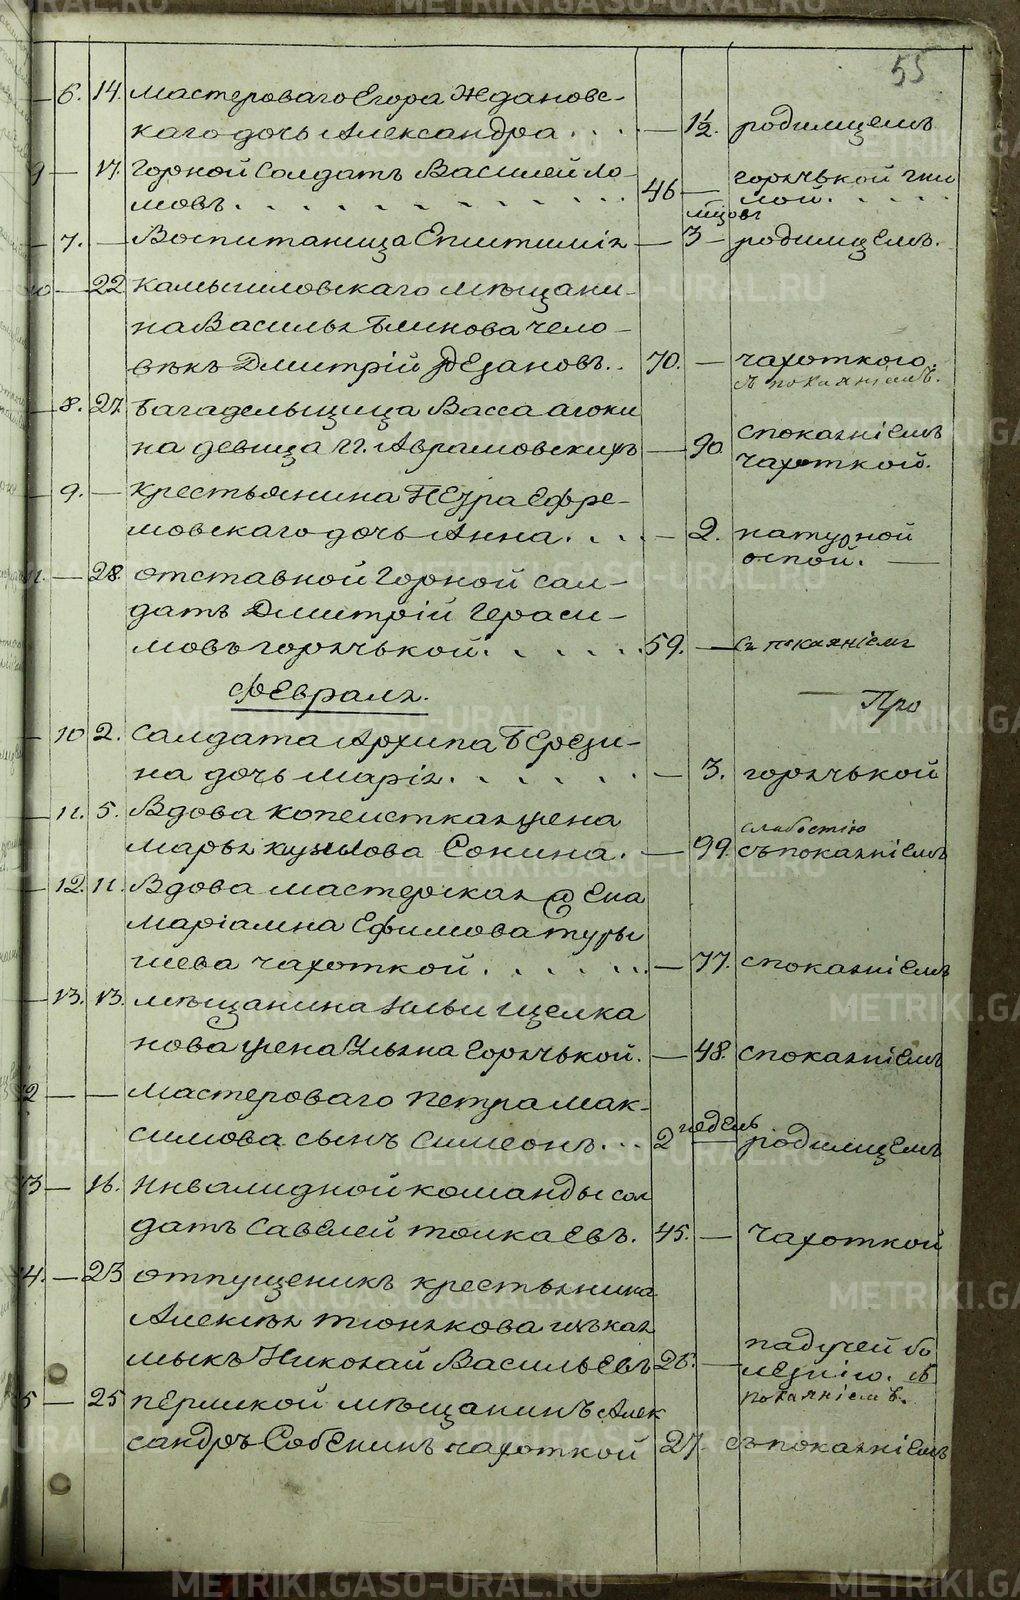 55
6. 14. Мастероваго Егора Ждановс-
каго дочь Александра . . . . — 1½. родимцемъ
9 — 17. Горной Солдатъ Василей Ло-
мовъ . . . . . . . . . . . 46 — горячькой гни
лой. . . . .
мцовъ
— 7. — Воспитаница Епистимія — 3 — родимцемъ.
10 — 22 Камышловскаго мѣщани-
на Василья Блинова чело-
вѣкъ Дмитрій Резановъ.. 70. — чахоткою.
съ покаяніемъ.
— 8. 27. Багадельщица Васса
на девица гг. Аврамовскихъ — 90 спокаяніемъ
чахоткой.
— 9. — Крестьянина Петра Ефре-
мовскаго дочь Анна. . . . — 2. натурной
оспой. —
11. — 28. Отставной Горной Сол-
датъ Дмитрій Гераси-
мовъ горячькой. . . . . . 59. — съ покаяніемъ
Февраля.
Про
— 10 2. Солдата Архипа Берези-
на дочь Марія. . . . . . — 3. горячькой
— 11. 5. Вдова Копеистка жена
слабостію
Марья Сонина. — 99. съ покаяніемъ
— 12. 11. Вдова Мастерская жена
Маріамна Ефимова Туры
гиева чахоткой . . . . . . — 77. спокаяніемъ
— 13. 13. Мѣщанина Ильи Щелка
нова жена Ульяна Горячькой. — 48. спокаяніемъ
12 — — Мастероваго Петра Мак-
недель
симова сынъ Симеонъ. . . 2 — родимцемъ
13 — 16. Инвалидной команды сол
датъ Савелей Толкаевъ. 45. — чахоткой
14. — 23 Отпущеникъ крестьянина
Алексѣя Тюнякова изъ кал
мыкъ Николай Васильевъ 26. — падучей бо
лезнію. съ
покаяніемъ.
15 — 25 Пермской мѣщанинъ Алек
сандръ Собенинъ чахоткой 27. съ покаяніемъ
METRIKI.GASO-URAL.RU